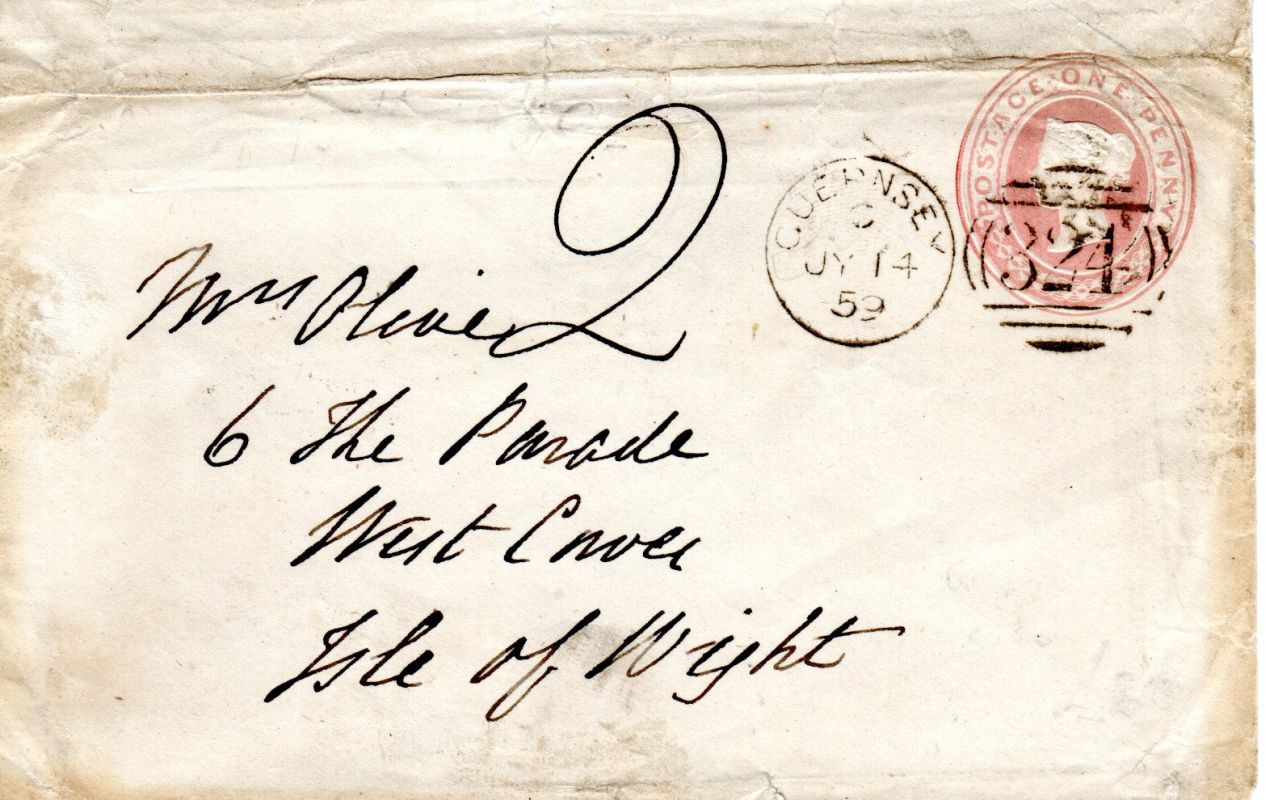 POSTAGE ONE PENNY
GUERNSEY
C
JY 14
59
324
2
Mrs Olive
6 The Parade
West Cowes
Isle of Wight